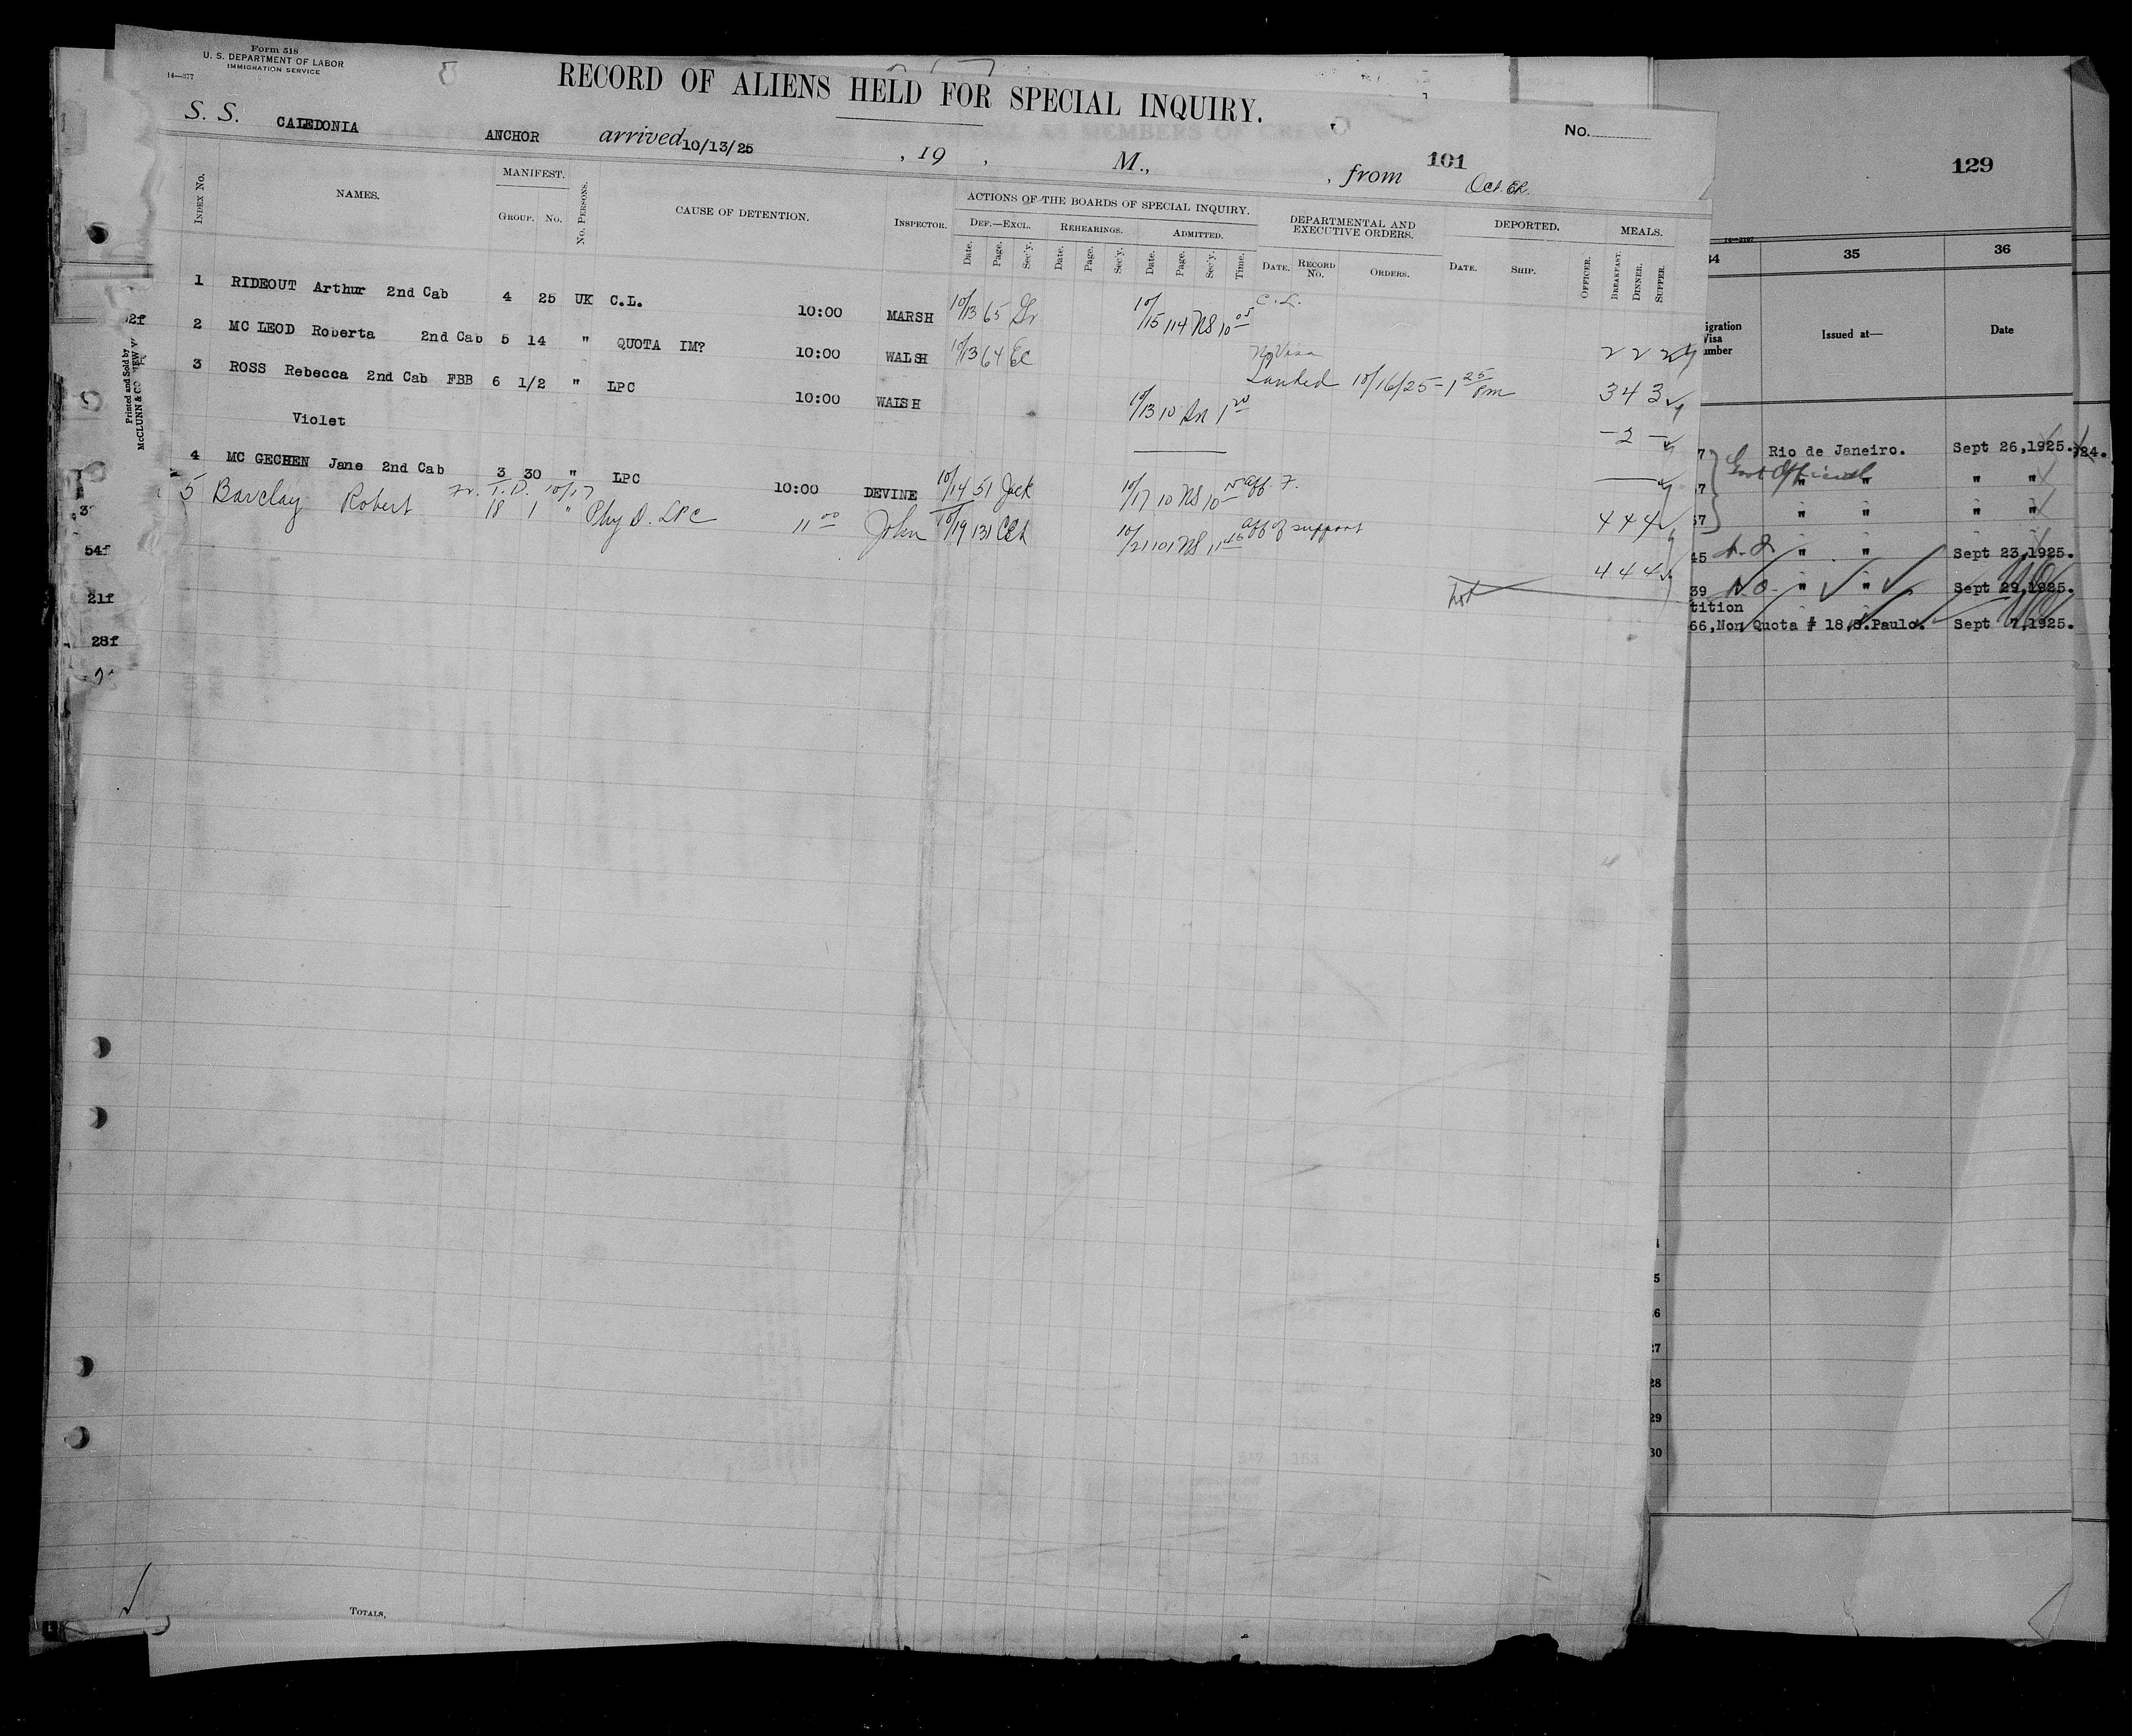 Form 518
U. S. DEPARTMENT OF LABOR
IMMIGRATION SERVICE
14—377
RECORD OF ALIENS HELD FOR SPECIAL INQUIRY.
No.
S. S. CALEDONIA ANCHOR arrived 10/13/25 , 19 , M., , from 101
129
INDEX NO. NAMES. MANIFEST. GROUP. NO. NO. PERSONS. CAUSE OF DETENTION. INSPECTOR. ACTIONS OF THE BOARDS OF SPECIAL INQUIRY. DEPARTMENTAL AND EXECUTIVE ORDERS. DEPORTED. MEALS.
DEF.—EXCL. REHEARINGS. ADMITTED.
Date. Page. Sec'y. Date. Page. Sec'y. Date. Page. Sec'y. Time. DATE. RECORD NO. ORDERS. DATE. SHIP. OFFICER. BREAKFAST. DINNER. SUPPER.
1 RIDEOUT Arthur 2nd Cab 4 25 UK C.L. 10:00 MARSH 10/13 65 10/15 114 NS 10 05 C.L. 2 2 2
2 MC LEOD Roberta 2nd Cab 5 14 " QUOTA IM? 10:00 WALSH 10/13 64 EC No Visa
Landed 10/16/25 - 1 25 Pm 3 4 3
3 ROSS Rebecca 2nd Cab FBB 6 1/2 " LPC 10:00 WALSH 10/13 10 1 20 - 2 -
Violet
4 MC GECHEN Jane 2nd Cab 3 30 " LPC 10:00 DEVINE 10/14 51 Jack 10/17 10 NS 10 aff. F. 4 4 4
Fr. T.D. 10/17
5 Barclay Robert 18 1 " Phy D. LPC 11 00 John 10/19 131 10/21 101 NS 11 46 aff of support 4 4 4
TOTALS,
Printed and Sold by
McCLUNN & CO NEW Y
2f
54f
21f
28f
34 35 36
igration
Visa
umber
Issued at—
Date
7 Rio de Janeiro. Sept 26,1925. 24.
7 Govt Official " " " "
57 " " " "
45 " " Sept 23,1925.
39 N.O. " " Sept 29,1925.
tition
66, Non Quota # 18,S.Paulo. Sept 7,1925.
5
6
27
28
29
30